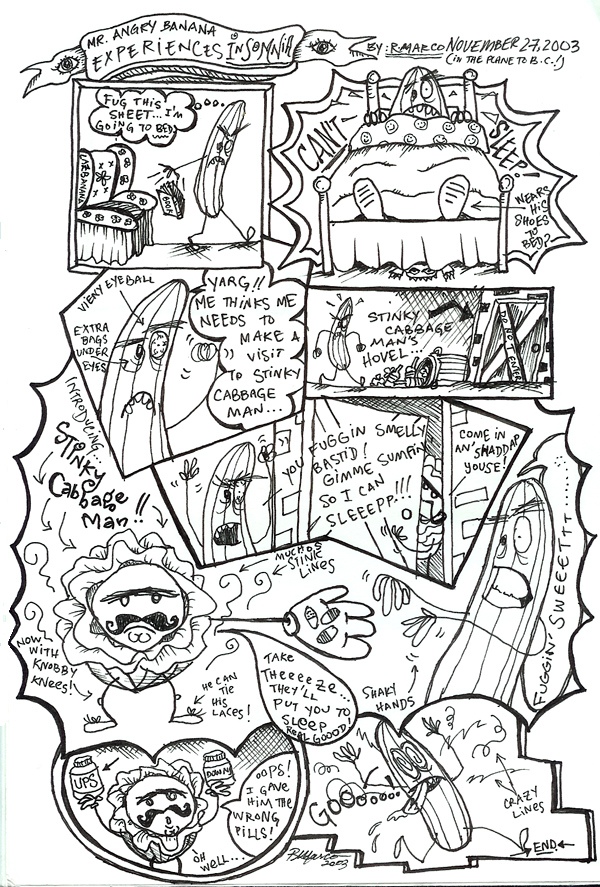 MR. ANGRY BANANA
EXPERIENCES INSOMNIA
BY: R.MARCO NOVEMBER 27, 2003
(IN THE PLANE TO B.C.!)
FUG THIS
SHEET... I'M
GOING TO BED
BOOK
CAN'T
SLEEP!
WEARS
HIS
SHOES
TO
BED?
VIENY EYEBALL
EXTRA
BAGS
UNDER
EYES
YARG!!
ME THINKS ME
NEEDS TO
MAKE A
VISIT
TO STINKY
CABBAGE
MAN...
STINKY
CABBAGE
MAN'S
HOVEL...
DO NOT ENTER
INTRODUCING
STINKY
CABBAGE
MAN!!
YOU
FUGGIN SMELLY
BASTID!
GIMME SUMFIN
SO I CAN
SLEEEPP...!!!
COME IN
AN' SHADDAP
YOUSE!
MUCHOS
STINK
LINES
NOW
WITH
KNOBBY
KNEES!
HE CAN
TIE
HIS
LACES!
TAKE
THEEEEZE...
THEY'LL
PUT YOU TO
SLEEP
REAL GOOOD!
SHAKY
HANDS
FUGGIN' SWEEETTT.....
UPS
DOWNS
OOPS!
I GAVE
HIM THE
WRONG
PILLS!
OH
WELL...
GOO
CRAZY
LINES
END
RMarco
2003